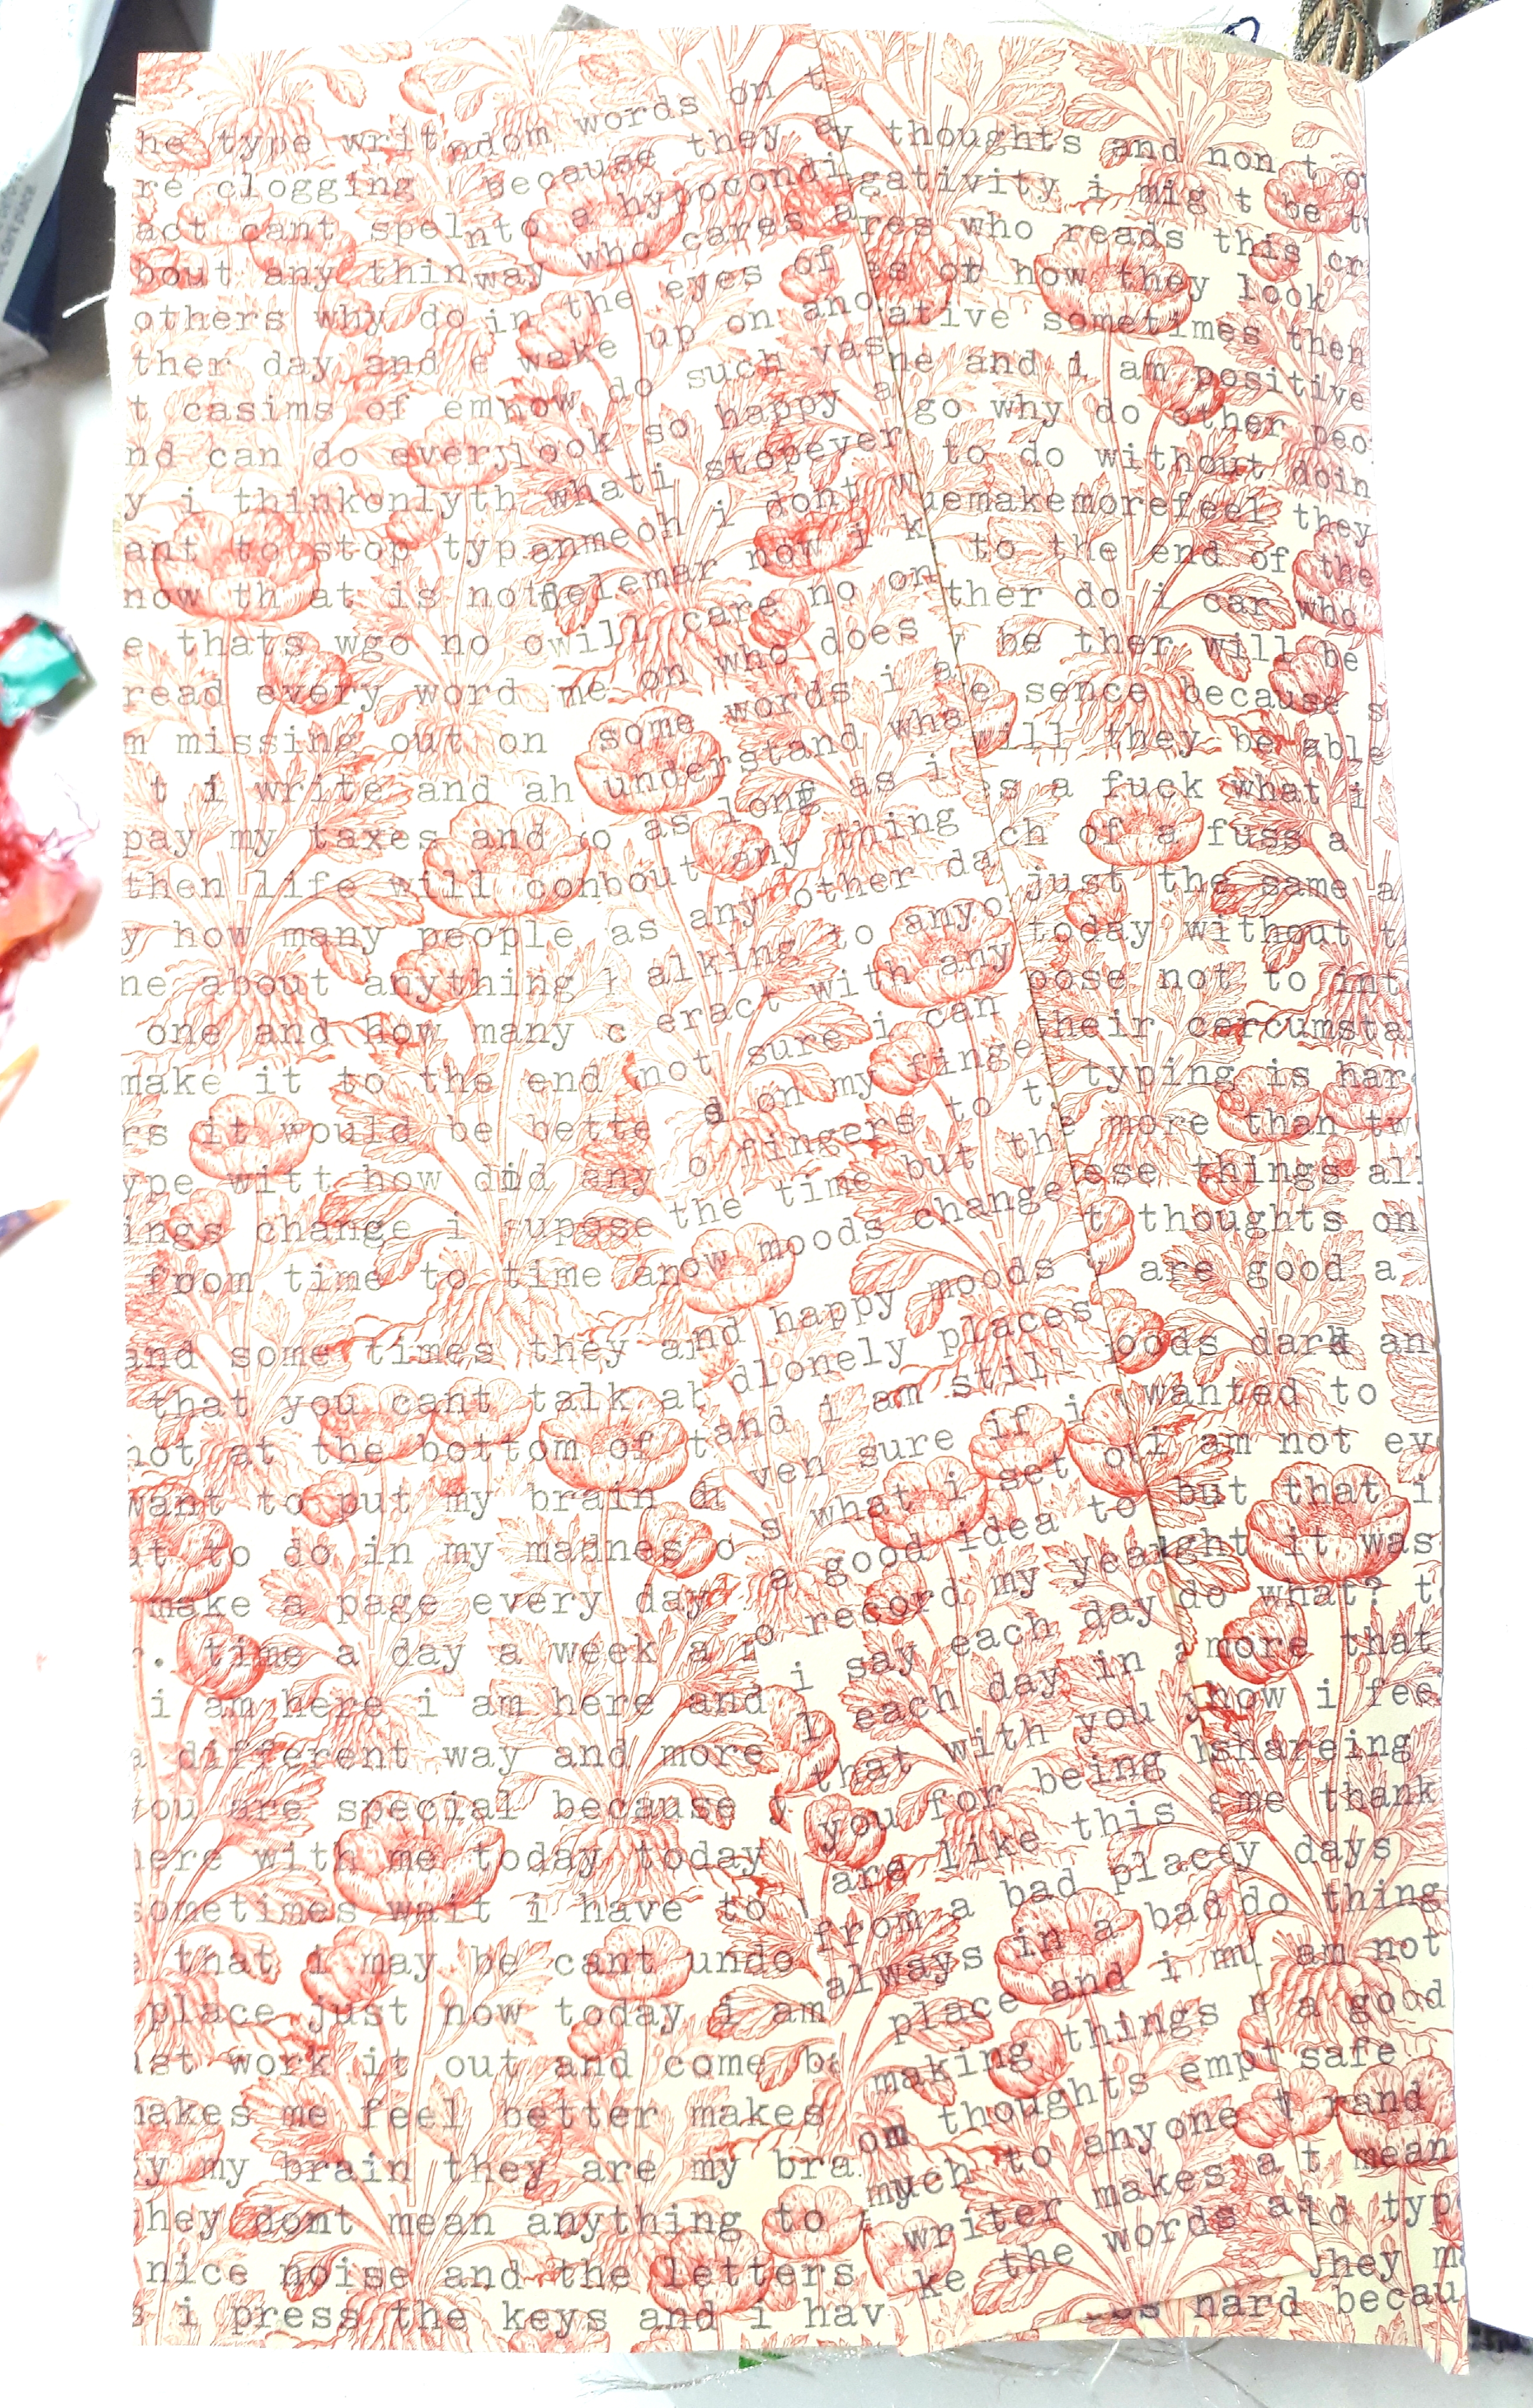 he type writ
re clogging
act cant spel
bout any thin
others why do
ther day and e
t casims of em
nd can do every
y i thinkonlyth
ant to stop typ
now th at is not
e thats wgo no o
read every word
m missing out on
t i write and ah
pay my taxes and
then life will con
y how many people
ne about anything
one and how many c
make it to the end
rs it would be bette
ype witt how did any
ings change i supose
from time to time an
and some times they a
that you cant talk ab
not at the bottom of
want to put my brain
ut to do in my madnes
make a page every day
r. time a day a week a
i am here i am here and
a different way and more
you are special because y
here with me today today
sometimes wait i have to
that i may be cant undo
place just now today i am
ust work it out and come ba
makes me feel better makes
y my brain they are my bra
hey dont mean anything to
nice noise and the letters
s i press the keys and i hav
ndom words on t
because they a
nto a hypocondi
way who cares a
in the eyes of
wake up on ano
how do such vas
look so happy a
whati stopever
anmeoh i dont w
now i k
will care no on
me on who does
some words i a
understand wha
o as long as i
bout any thing
as any other da
alking to anyo
eract with any
not sure i can
s on my finge
o fingers to t
the time but th
ow moods change
nd happy moods
dlonely places
tand i am still
ven sure if i
s what i set o
a good idea to
o record my yea
i say each day
l each day in a
that with you y
you for being
are like this
from a bad place
always in a bad
place and i mu
making things
om thoughts empt
much to anyone
writer makes a
ke the words a
y thoughts and non t o
gativity i mig t be tw
res who reads this cr
es or how they look
ative sometimes then
ne and i am positive
go why do other peo
to do without doin
uemakemorefeel they
to the end of the
ther do i car who
be ther will be
e sence because s
ill they be able
s a fuck what i
ch of a fuss a
just the same a
today without t
pose not to int
their carcumsta
typing is har
more than tw
ese things al
t thoughts on
are good a
oods dark an
wanted to
i am not ev
but that i
ght it was
do what? t
more that
how i fee
shareing
me thank
y days
do thing
am not
a good
safe
rand
t mean
id typ
hey m
hard becau